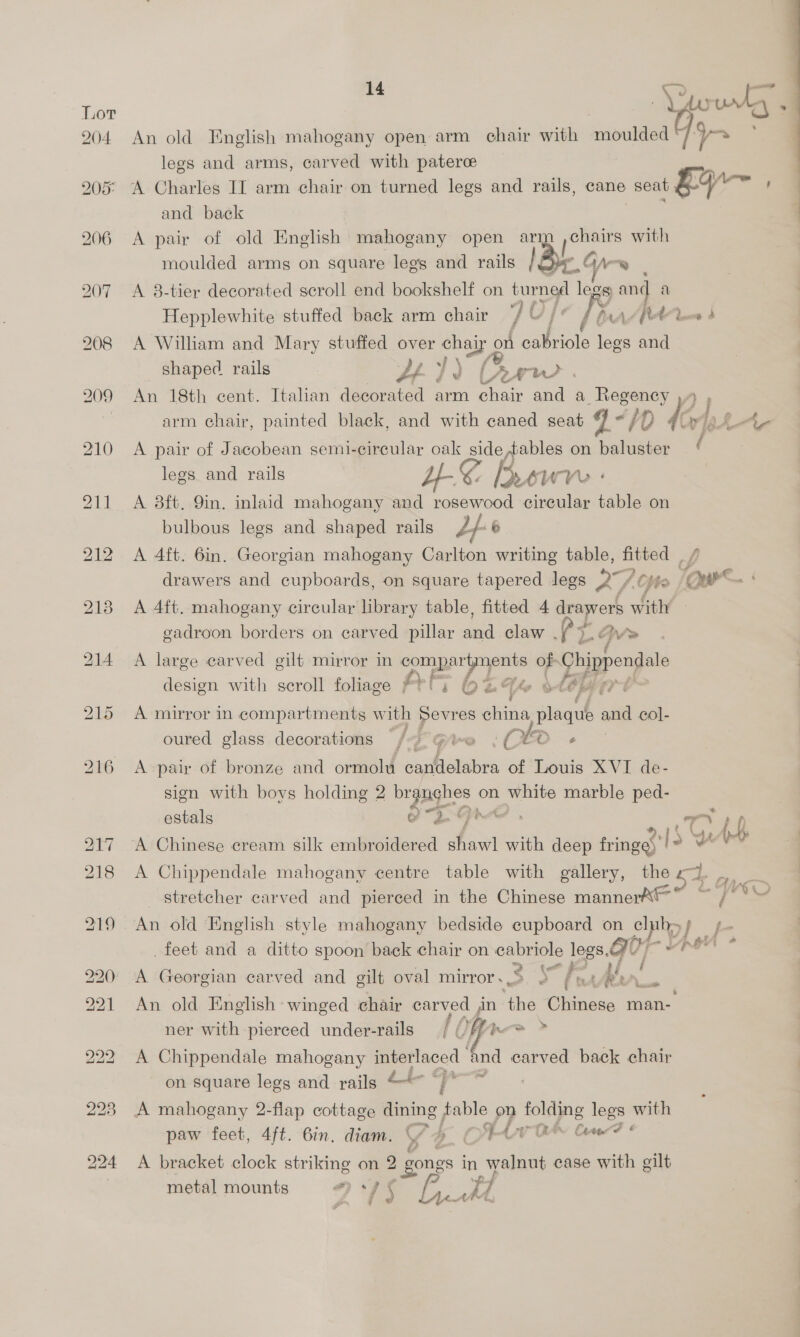 14
Lot
204 An old English mahogany open arm chair with moulded
legs and arms, carved with pateræ
205 A Charles II arm chair on turned legs and rails, cane seat
and back
206 A pair of old English mahogany open arm chairs with
moulded arms on square legs and rails
207 A 3-tier decorated scroll end bookshelf on turned legs and a
Hepplewhite stuffed back arm chair
208 A William and Mary stuffed over chair on cabriole legs and
shaped rails
209 An 18th cent. Italian decorated arm chair and a Regency
arm chair, painted black, and with caned seat
210 A pair of Jacobean semi-circular oak side tables on baluster
legs and rails Brown
211 A 3ft. 9in. inlaid mahogany and rosewood circular table on
bulbous legs and shaped rails
212 A 4ft. 6in. Georgian mahogany Carlton writing table, fitted
drawers and cupboards, on square tapered legs
213 A 4ft. mahogany circular library table, fitted 4 drawers with
gadroon borders on carved pillar and claw
214 A large carved gilt mirror in compartments of Chippendale
design with scroll foliage
215 A mirror in compartments with Sevres china plaque and col-
oured glass decorations
216 A pair of bronze and ormolu candelabra of Louis XVI de-
sign with boys holding 2 branches on white marble ped-
estals
217 A Chinese cream silk embroidered shawl with deep fringe
218 A Chippendale mahogany centre table with gallery, the
stretcher carved and pierced in the Chinese manner
219 An old English style mahogany bedside cupboard on club
feet and a ditto spoon back chair on cabriole legs
220 A Georgian carved and gilt oval mirror
221 An old English winged chair carved in the Chinese man-
ner with pierced under-rails
222 A Chippendale mahogany interlaced and carved back chair
on square legs and rails
223 A mahogany 2-flap cottage dining table on folding legs with
paw feet, 4ft. 6in. diam.
224 A bracket clock striking on 2 gongs in walnut case with gilt
metal mounts